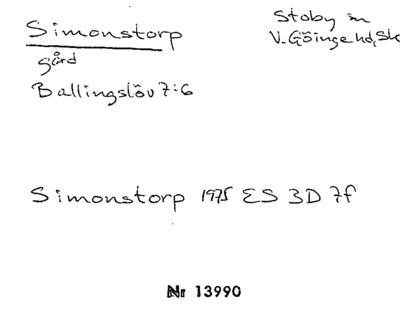 Simonstorp
Stoby sn
V. Göinge hd, Sk
gård
Ballingslöv 7:6
Simonstorp 1975 ES 3D 7f
Nr 13990